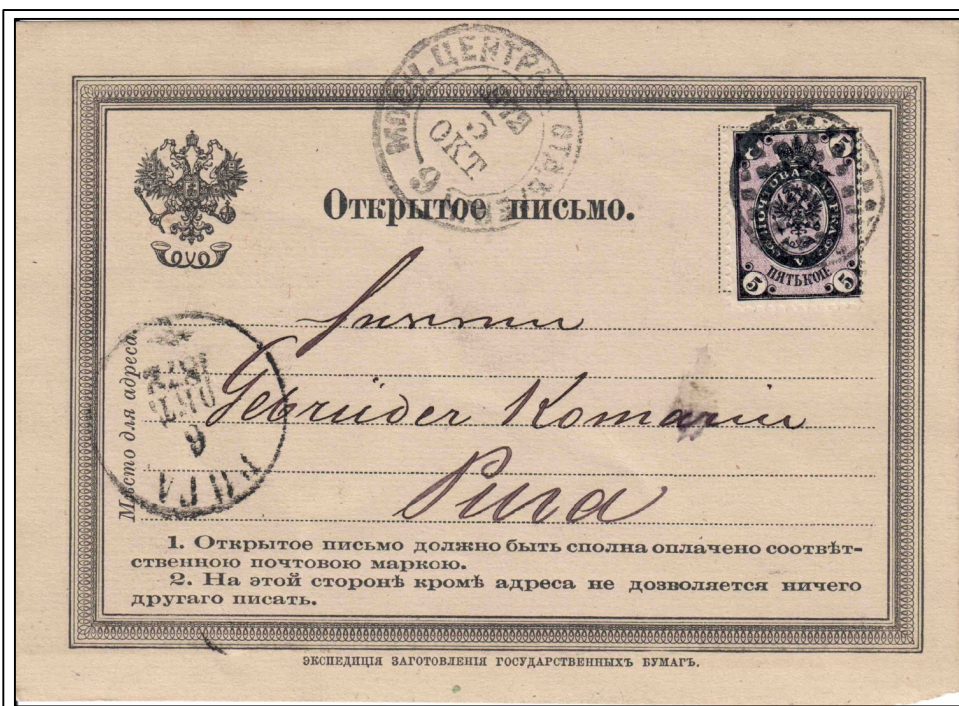 1872
ОКТ
Открытое письмо.
5 5
ПОЧТОВАЯ МАРКА
V
ПЯТЬ КОП.
5 5
Gebrüder
Рига
Место для адреса.
1872
ОКТ
6
РИГА
1. Открытое письмо должно быть сполна оплачено соотвѣт-
ственною почтовою маркою.
2. На этой сторонѣ кромѣ адреса не дозволяется ничего
другаго писать.
ЭКСПЕДИЦІЯ ЗАГОТОВЛЕНІЯ ГОСУДАРСТВЕННЫХЪ БУМАГЪ.